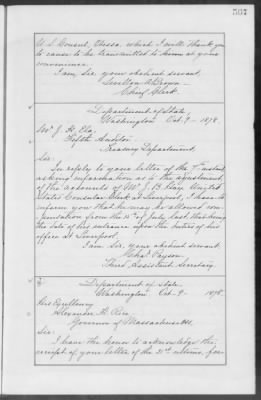 567
U. S. Consul, Odessa, which I will thank you
to cause to be transmitted to him at your
convenience.
I am, Sir, your obedient servant,
Sevellon A. Brown
Chief Clerk.
Department of State,
Washington Oct. 9 - 1878.
J. H. Ela,
Fifth Auditor
Treasury Department.
Sir:
In reply to your letter of the 7th instant
asking information as to the adjustment
of the accounts of Mr. J. B. Hay United
States Consular Clerk at Liverpool, I have to
inform you that he may be allowed com-
pensation from the of July last, that being
the date of his entrance upon the duties of his
office at Liverpool.
I am Sir, your obedient servant,
Chas. Payson,
Third Assistant Secretary.
Department of State,
Washington, Oct. 9 - 1878.
His Excellency
Alexander H. Rice,
Governor of Massachusetts.
Sir:
I have the honor to acknowledge the
receipt of your letter of the 21st ultimo, for-